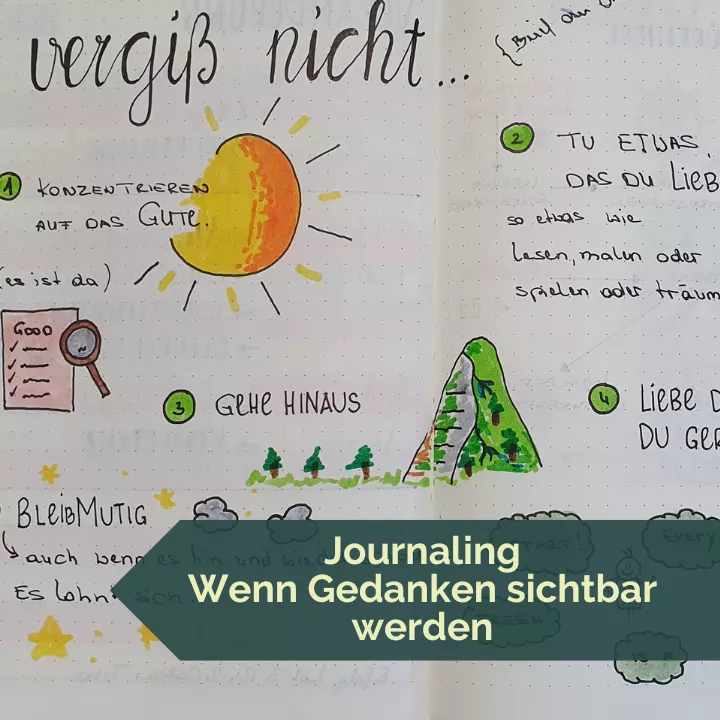 vergiß nicht...
1 KONZENTRIEREN
AUF DAS GUTE.
(es ist da)
GOOD
2 TU ETWAS,
DAS DU LIEB
so etwas wie
lesen, malen oder
spielen oder träum
3 GEHE HINAUS
4 LIEBE D
DU GER
BLEIB MUTIG
auch wenn es hin und
Es lohnt sich
Every
Journaling
Wenn Gedanken sichtbar
werden